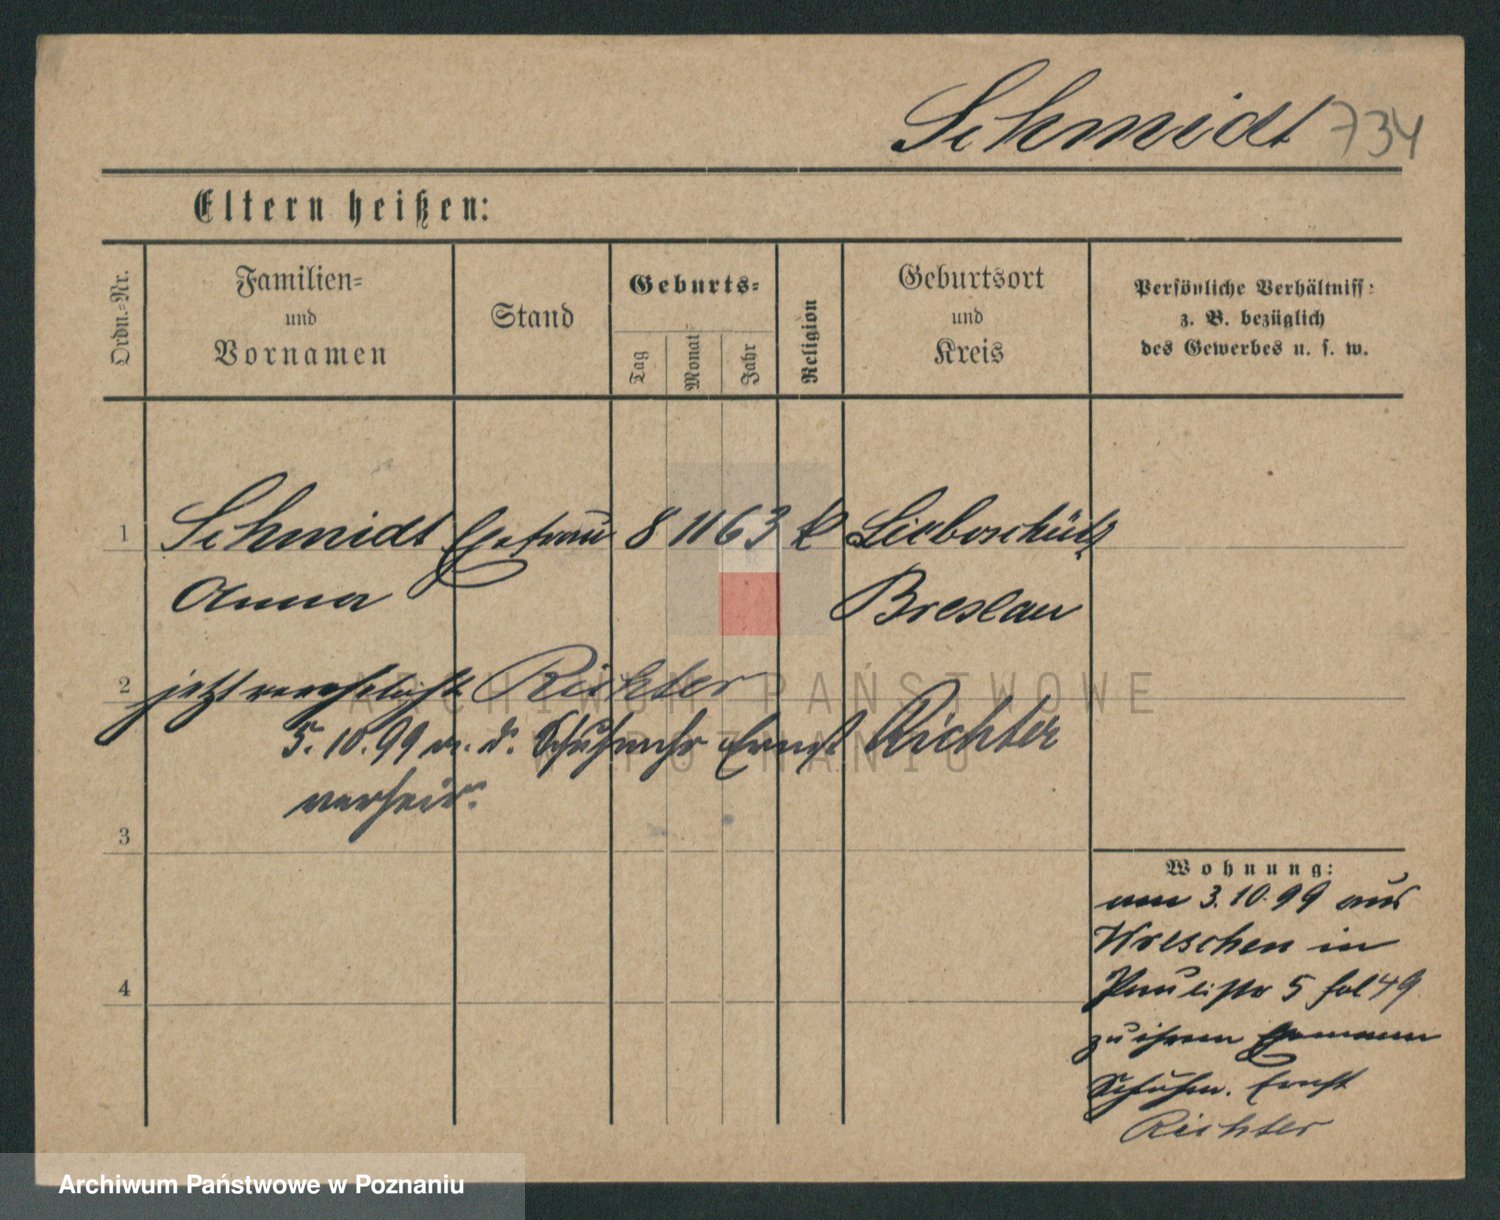 Schmidt 734
Eltern heißen:
Ordn.-Nr.
Familien-
und
Vornamen
Stand
Geburts-
Tag
Monat
Jahr
Religion
Geburtsort
und
Kreis
Persönliche Verhältniss:
z. B. bezüglich
des Gewerbes u. s. w.
1 Schmidt Ehefrau 8 11 63 k Lieboschütz
Anna Breslau
2 jetzt verehelicht Richter
5.10.99 m. d. Ernst Richter
verheir.
3
4
Wohnung:
am 3.10.99 aus
Wreschen in
Paulistr 5 fol 49
zu ihrem Ehemann
Schuhm. Ernst
Richter
ARCHIWUM PAŃSTWOWE
W POZNANIU
Archiwum Państwowe w Poznaniu